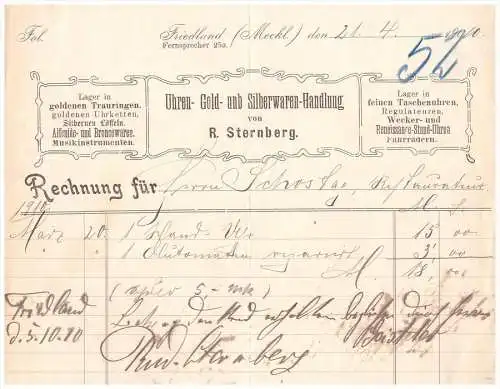 Fol.
Friedland (Meckl.) den 21. 4. 1910.
Fernsprecher 25a.
52
Lager in
goldenen Trauringen,
goldenen Uhrketten,
Silbernen Löffeln,
Alfenide- und Broncewäre,
Musikinstrumenten.
Uhren- Gold- und Silberwaren-Handlung
von
R. Sternberg.
Lager in
feinen Taschenuhren,
Regulatoren,
Wecker- und
Renaissance-Stand-Uhren
Fahrrädern.
Rechnung für Herrn Schostag, Restaurateur
1910. M. d.
März 20. 1 Wand-Uhr 15 00
1 Automaten reparirt 3, 00
M. 18, 00
5.- mk
Friedland
d. 5.10.10
dankend erhalten durch
Rud. Sternberg